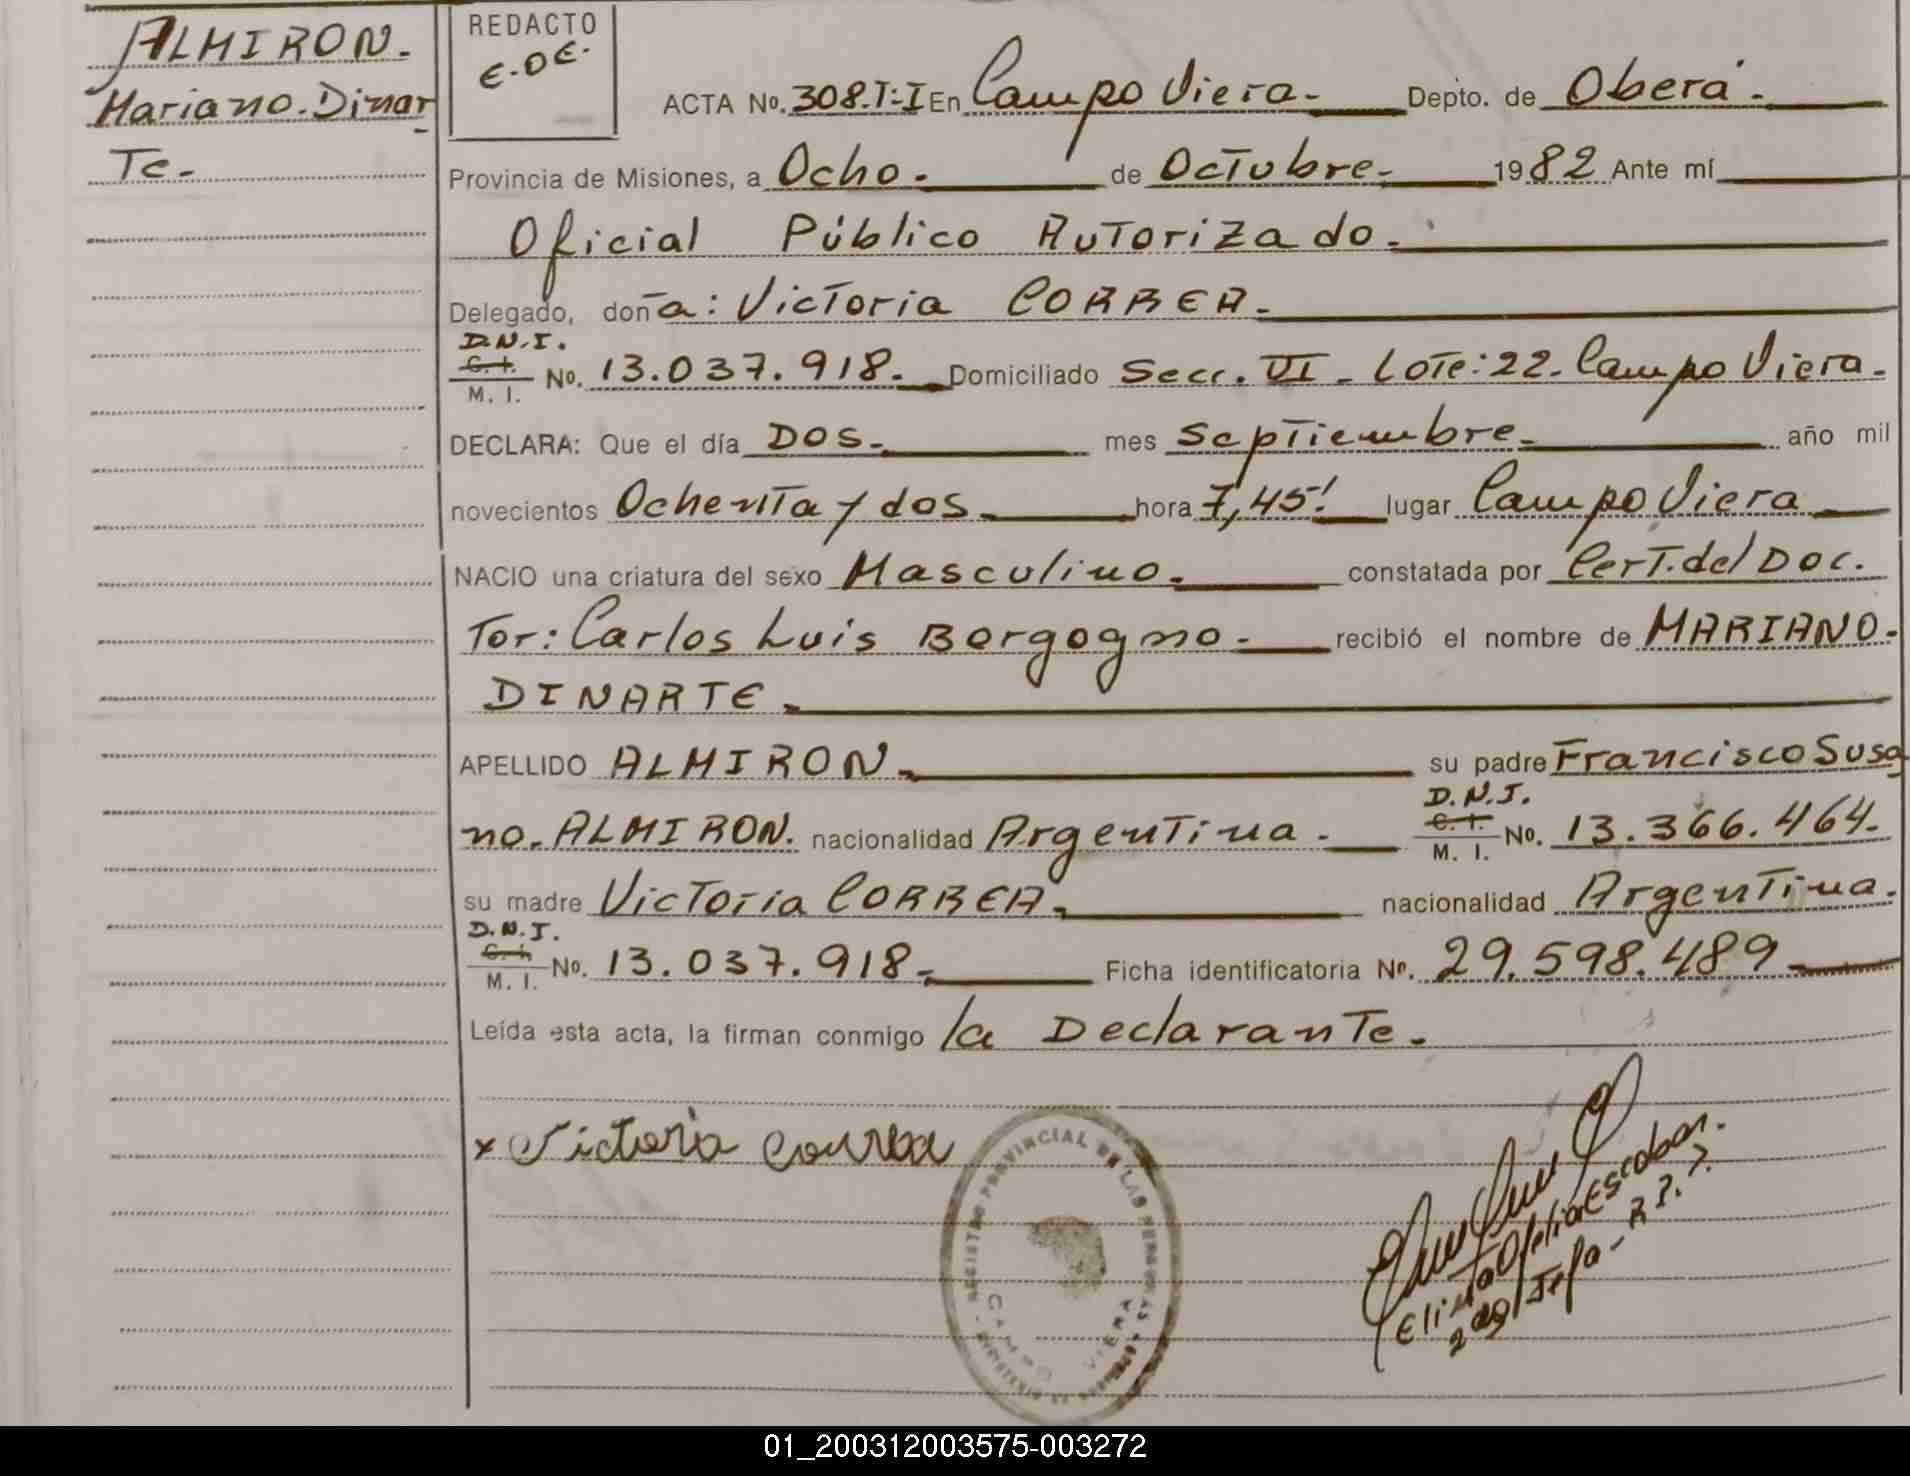 ALMIRON.
Mariano.Dinar
Te.
REDACTO
E.OE.
ACTA No. 308.T:I En Campo Viera. Depto. de Oberá.
Provincia de Misiones, a Ocho. de Octubre. 1982 Ante mí
Oficial Público Autorizado.
Delegado, doña: Victoria CORREA.
D.N.I.
C. I.
M. I.
No. 13.037.918. Domiciliado Secc. VI - Lote: 22. Campo Viera.
DECLARA: Que el día DOS. mes Septiembre. año mil
novecientos Ochenta y dos. hora 7,45' lugar Campo Viera
NACIO una criatura del sexo Masculino. constatada por Cert. del Doc.
Tor: Carlos Luis Borgogno. recibió el nombre de MARIANO.
DINARTE.
APELLIDO ALMIRON. su padre Francisco Susa
D.N.I.
C. I.
M. I.
no. ALMIRON. nacionalidad Argentina. No. 13.366.464.
su madre Victoria CORREA. nacionalidad Argentina.
D.N.I.
C. I.
M. I.
No. 13.037.918. Ficha identificatoria No. 29.598.489
Leída esta acta, la firman conmigo la Declarante.
x Victoria Correa
REGISTRO PROVINCIAL DE LAS PERSONAS
CAMPO VIERA
Ofelia Escobar.
Jefa - R.P.P.
01_200312003575-003272